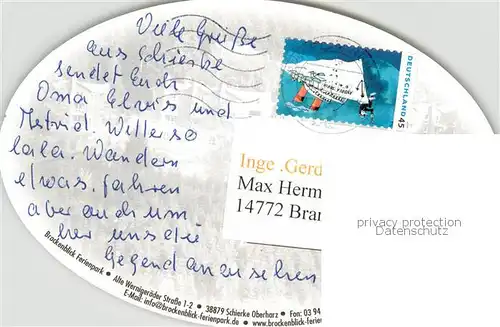 Viele Grüße
aus Schierke
sendet Euch
Oma und
Astrid. Wetter so
lala. Wandern
etwas, fahren
aber auch um
her uns die
Gegend anzusehen
DEUTSCHLAND 45
Inge .Gerd
Max Herm
14772 Bran
privacy protection
Datenschutz
Brockenblick Ferienpark • Alte Wernigeröder Straße 1-2 • 38879 Schierke Oberharz • Fon: 03 94
E-Mail: info@brockenblick-ferienpark.de • www.brockenblick-ferien